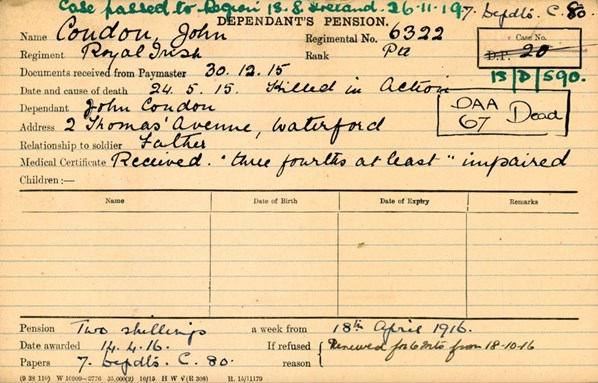 Case passed to Region 13. S. Ireland. 26-11-19
7. Depdts. C. 80.
DEPENDANT'S PENSION.
Name Condon, John Regimental No. 6322
Case No.
D.P. 20
Regiment Royal Irish Rank Pte
Documents received from Paymaster 30.12.15
13/D/590.
Date and cause of death 24.5.15. Killed in Action
Dependant John Condon
DAA
67 Dead
Address 2 Thomas' Avenue, Waterford
Relationship to soldier Father
Medical Certificate Received. "three fourths at least" impaired
Children :—
Name Date of Birth Date of Expiry Remarks
Pension Two shillings a week from 18th April 1916.
Date awarded 14.4.16. If refused Renewed for 6 Mts from 18-10-16
Papers 7. Depdts. C. 80. reason
(9 38 110) W 10009—2776 35,000(2) 10/15 H W V (E 308) H. 15/11179